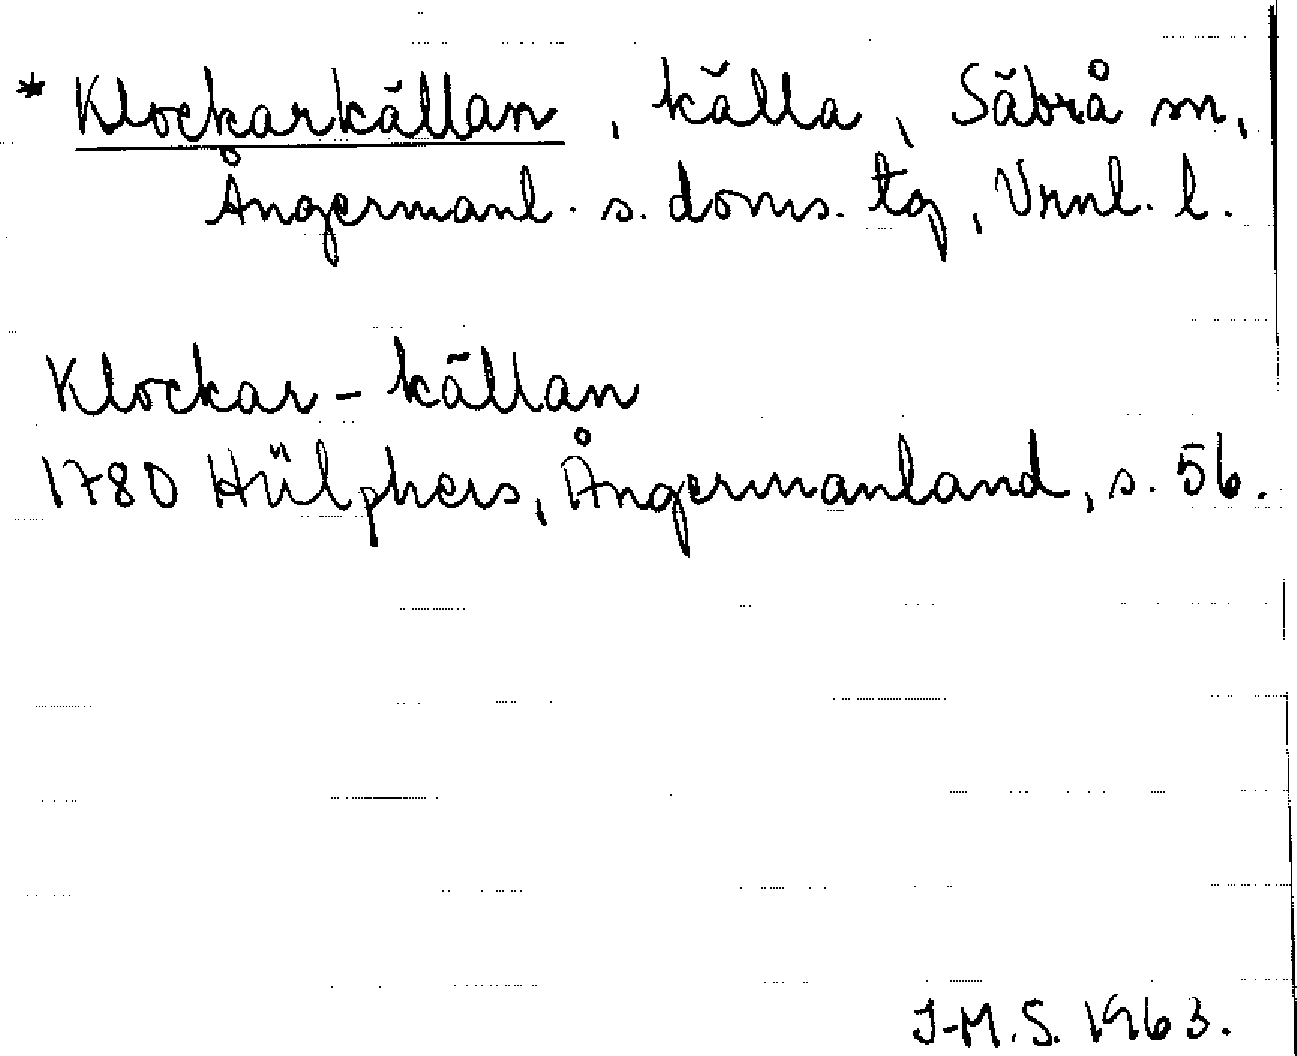 * Klockarkällan, källa, Säbrå sn,
Ångermanl. s. doms. tg, Vrnl. l.
Klockar-källan
1780 Hülphers, Ångermanland, s. 56.
I-M.S. 1963.